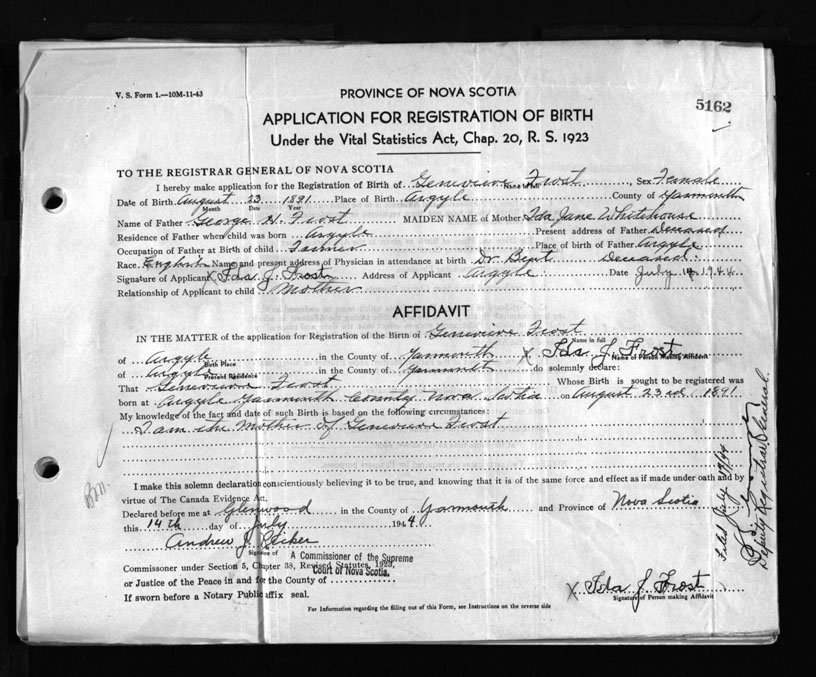 V. S. Form 1.—10M-11-43
PROVINCE OF NOVA SCOTIA
5162
APPLICATION FOR REGISTRATION OF BIRTH
Under the Vital Statistics Act, Chap. 20, R. S. 1923
TO THE REGISTRAR GENERAL OF NOVA SCOTIA
I hereby make application for the Registration of Birth of Genevieve Frost Name in full Sex Female
Date of Birth August 23 1891 Place of Birth Argyle County of Yarmouth
Month Date Year
Name of Father George H. Frost MAIDEN NAME of Mother Ida Jane Whitehouse
Residence of Father when child was born Argyle Present address of Father Deceased
Occupation of Father at Birth of child Farmer Place of Birth of Father Argyle
Race English Name and present address of Physician in attendance at birth Dr. Bent Deceased.
Signature of Applicant X Ida J. Frost Address of Applicant Argyle Date July 14 1944
Relationship of Applicant to child Mother
AFFIDAVIT
IN THE MATTER of the application for Registration of the Birth of Genevieve Frost
Name in full
of Argyle in the County of Yarmouth X Ida J. Frost
Birth Place Name of Person Making Affidavit
of Argyle in the County of Yarmouth do solemnly declare:
Present Residence
That Genevieve Frost Whose Birth is sought to be registered was
born at Argyle Yarmouth County Nova Scotia on August 23rd, 1891
My knowledge of the fact and date of such Birth is based on the following circumstances:
I am the Mother of Genevieve Frost
I make this solemn declaration conscientiously believing it to be true, and knowing that it is of the same force and effect as if made under oath and by
virtue of The Canada Evidence Act.
Declared before me at Glenwood in the County of Yarmouth and Province of Nova Scotia
this 14th day of July 1944
Andrew J.
Signature of
A Commissioner of the Supreme
Court of Nova Scotia.
Commissioner under Section 5, Chapter 38, Revised Statutes, 1923,
or Justice of the Peace in and for the County of
If sworn before a Notary Public affix seal.
X Ida J. Frost
Signature of Person making Affidavit
For Information regarding the filling out of this Form, see Instructions on the reverse side
Filed July 19/44
Deputy Registrar General